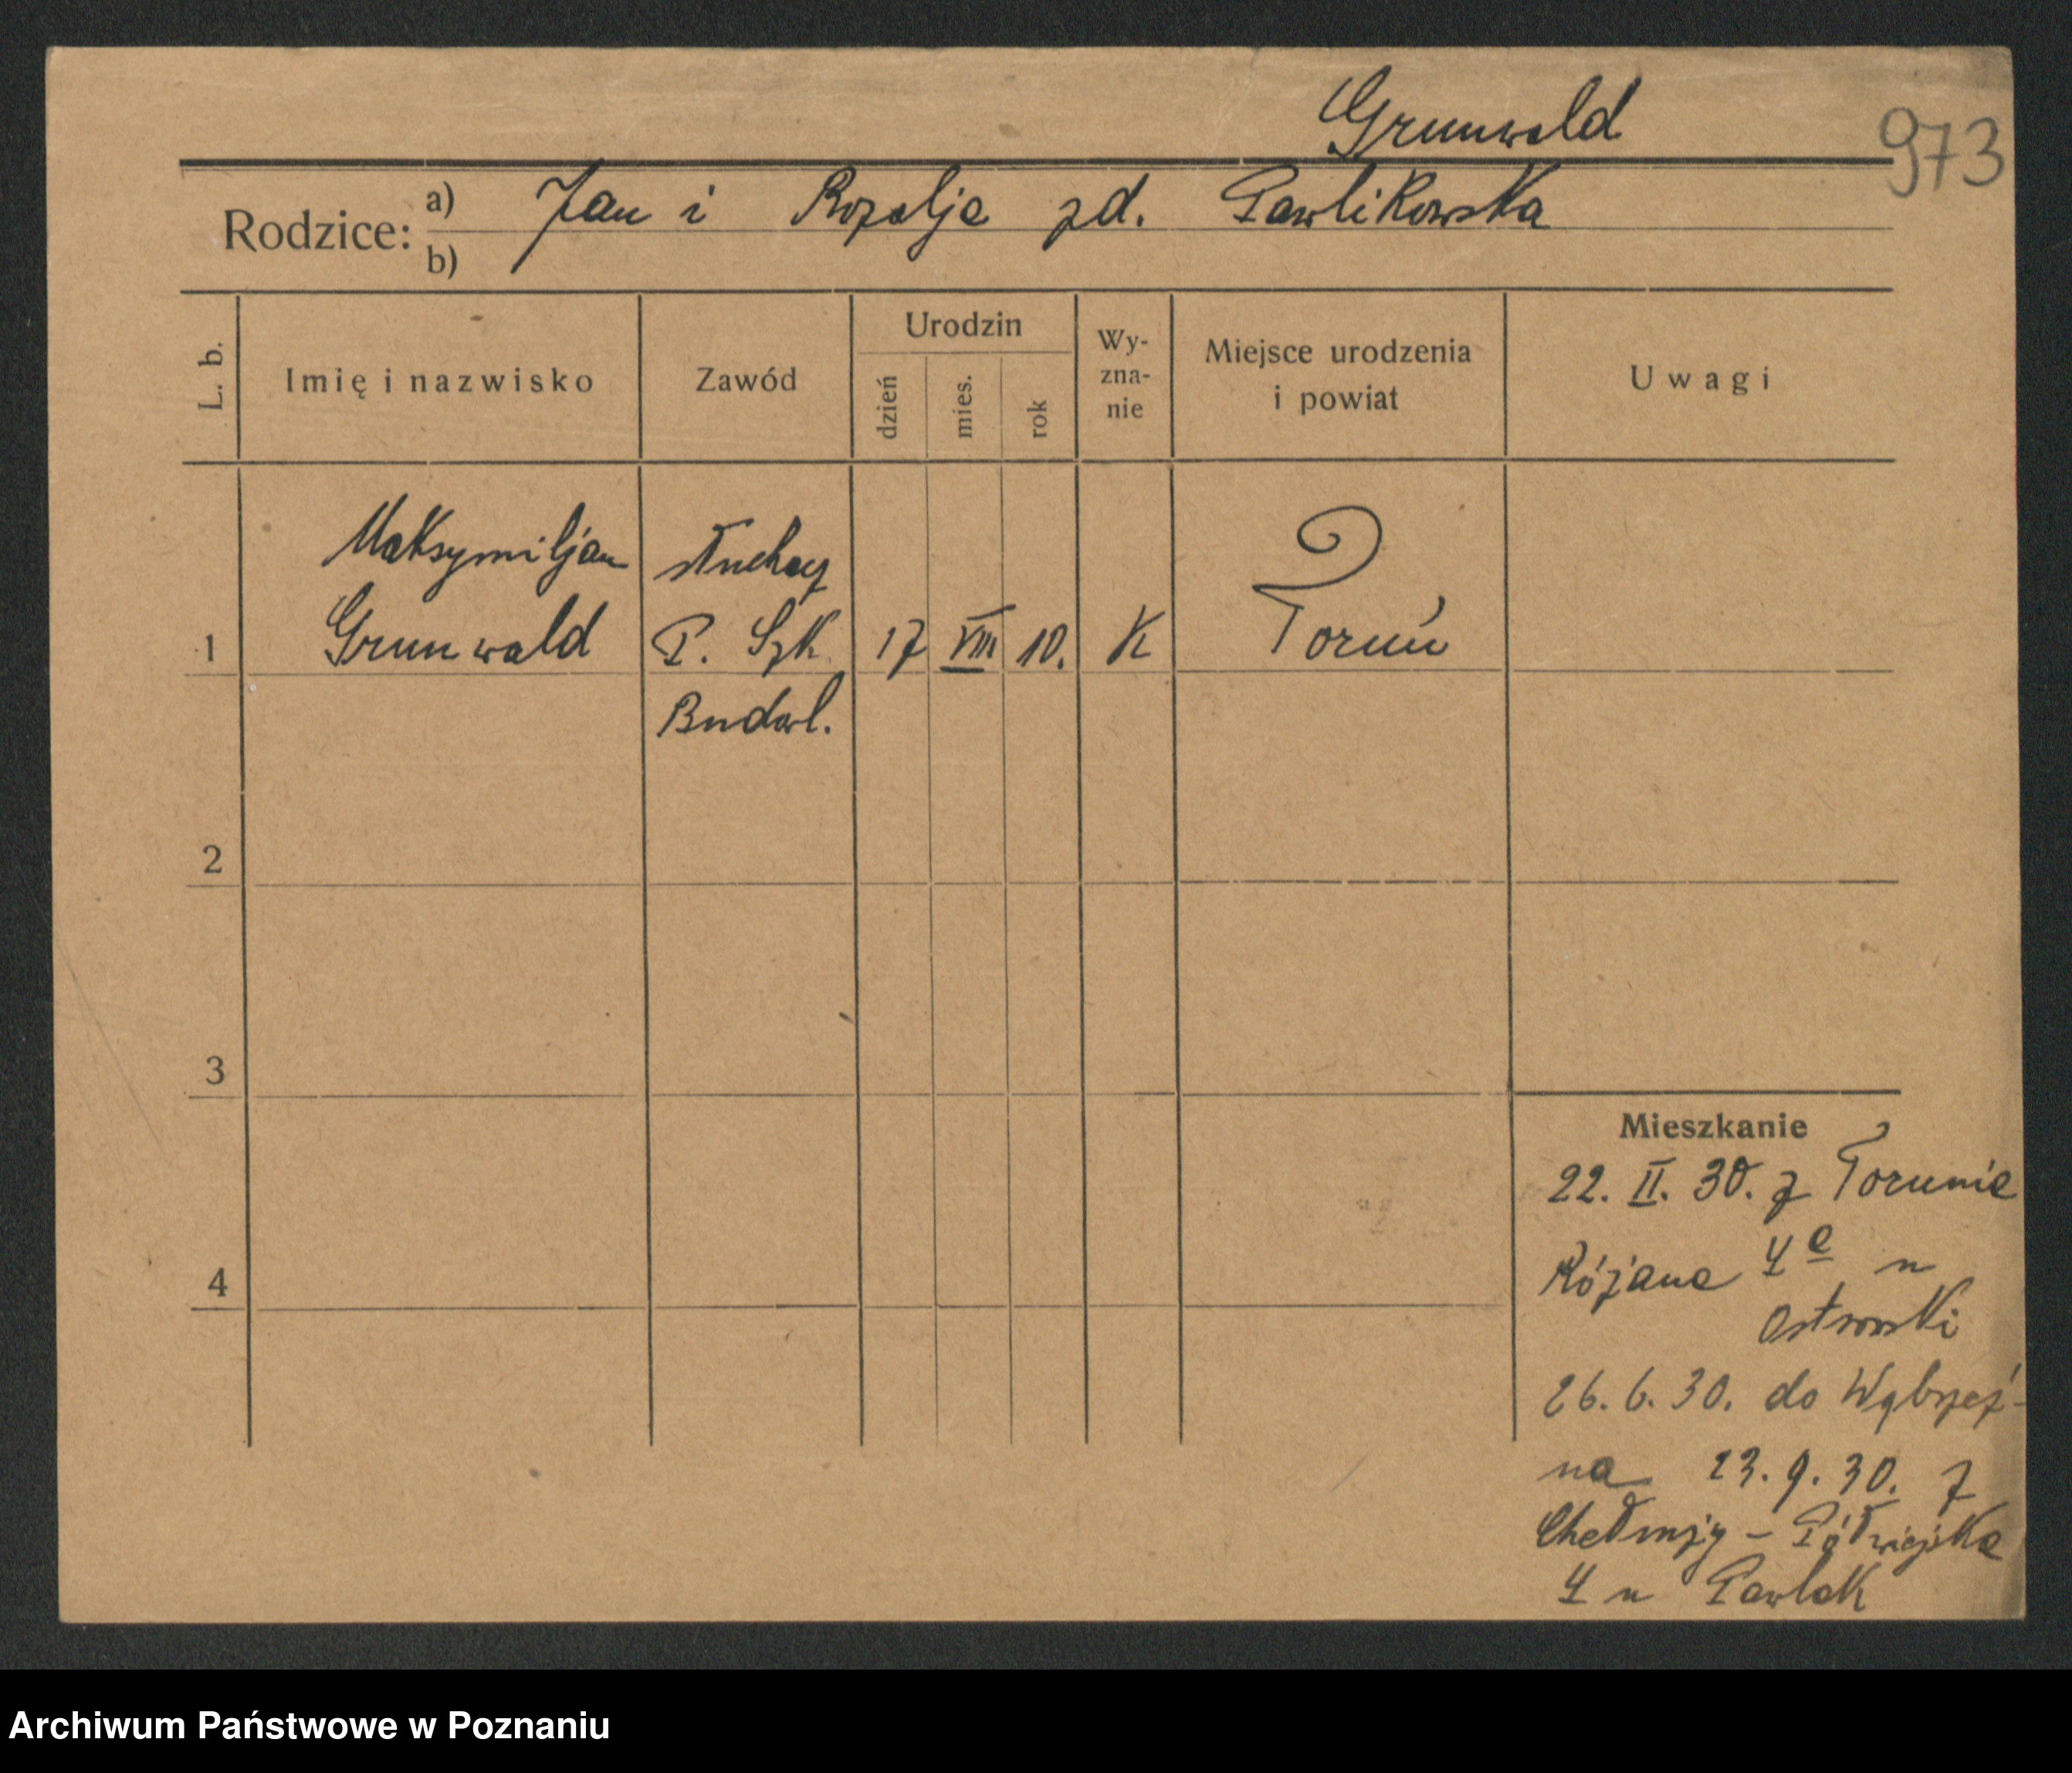 Grunwald
973
Rodzice: a) Jan i Rozalja zd. Pawlikowska
b)
L. b.
Imię i nazwisko
Zawód
Urodzin
dzień
mies.
rok
Wy-
zna-
nie
Miejsce urodzenia
i powiat
Uwagi
Maksymiljan
Grunwald
słuchacz
P. Szk.
Budowl.
1
17 VIII 10. K
Toruń
2
3
4
Mieszkanie
22. II. 30. z Torunia
Różana 4a u
Ostrowski
26. 6. 30. do Wąbrzeź-
na 23. 9. 30. z
Chełmży - Półwiejska
4 u Pawlak
Archiwum Państwowe w Poznaniu